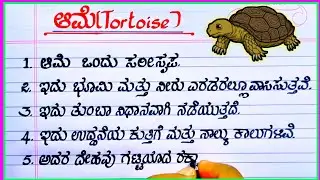 ಆಮೆ(Tortoise)
1. ಆಮೆ ಒಂದು ಸರೀಸೃಪ.
2. ಇದು ಭೂಮಿ ಮತ್ತು ನೀರು ಎರಡರಲ್ಲೂ ವಾಸಿಸುತ್ತವೆ.
3. ಇದು ತುಂಬಾ ನಿಧಾನವಾಗಿ ನಡೆಯುತ್ತದೆ.
4. ಇದು ಉದ್ದನೆಯ ಕುತ್ತಿಗೆ ಮತ್ತು ನಾಲ್ಕು ಕಾಲುಗಳಿವೆ.
5. ಅದರ ದೇಹವು ಗಟ್ಟಿಯಾದ